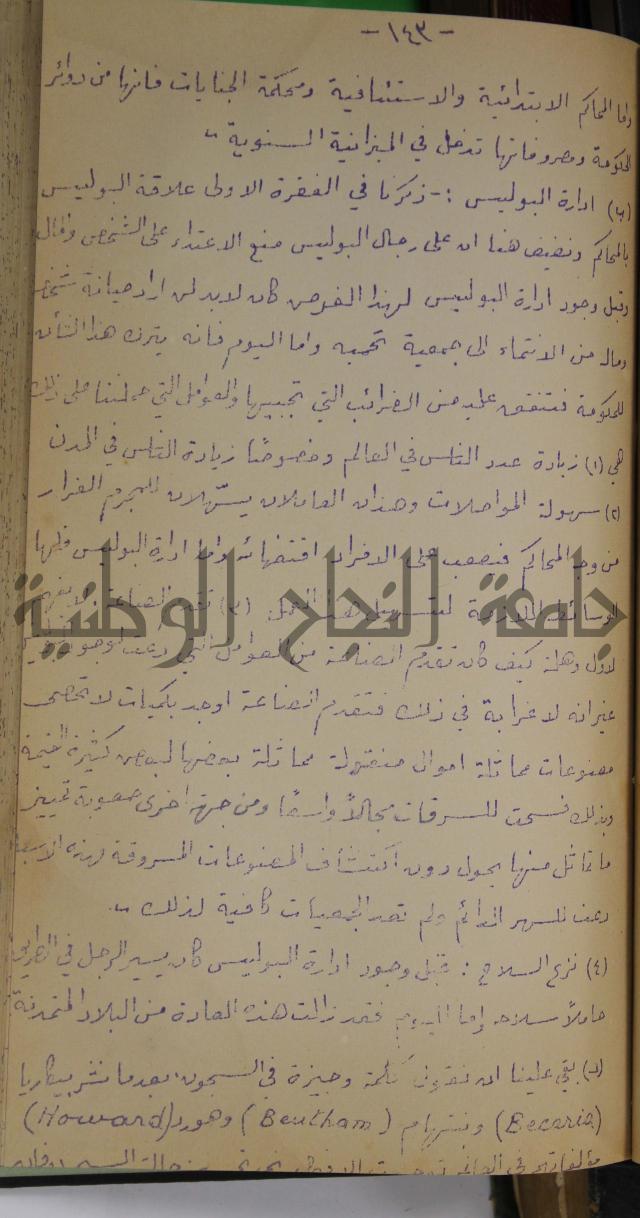 -١٤٣-
واما المحاكم الابتدائية والاستئنافية ومحكمة الجنايات فانها من دوائر
الحكومة ومصروفاتها تدخل في الميزانية السنوية
ادارة البوليس :- ذكرنا في الفقرة الاولى علاقة البوليس
بالمحاكم ونضيف هنا ان على رجال البوليس منع الاعتداء على الشخص والمال
وقبل وجود ادارة البوليس لهذا الغرض كان لابد لمن اراد صيانة شخصه
وماله من الانتماء الى جمعية تحميه واما اليوم فانه يترك هذا الشأن
للحكومة فتنفق عليه من الضرائب التي تجبيها والعوامل التي حملتنا على ذلك
هي (١) زيادة عدد الناس في العالم وخصوصًا زيادة الناس في المدن
(٢) سهولة المواصلات وهذان العاملان يسهلان للمجرم الفرار
من وجه المحاكم فيصعب على الافراد اقتفائه واما ادارة البوليس فلها
الوسائط اللازمة لتسهيل هذا العمل (٣) تقدم الصناعة لا يفهم
لاول وهلة كيف كان تقدم الصناعة من العوامل التي دعت لوجود
غير انه لا غرابة في ذلك فتقدم الصناعة اوجد بكميات لا تحصى
مصنوعات مماثلة اموال منقولة مماثلة بعضها لبعض كثيرة القيمة
وبذلك فسحت للسرقات مجالاً واسعًا ومن جهة اخرى صعوبة تمييز
ما تماثل منها يحول دون اكتشاف المصنوعات المسروقة لهذه الاسباب
دعت للسهر الدائم ولم تعد الجمعيات كافية لذلك
(٤) نزع السلاح : قبل وجود ادارة البوليس كان يسير الرجل في الطريق
حاملاً سلاحه واما اليوم فقد زالت هذه العادة من البلاد المتمدنة
بقي علينا ان نقول كلمة وجيزة في السجون بعدما نشر بيكاريا
(Becaria) وبنتهام (Beutham) وهورد (Howard)
مؤلفاتهم في
جامعة النجاح الوطنية